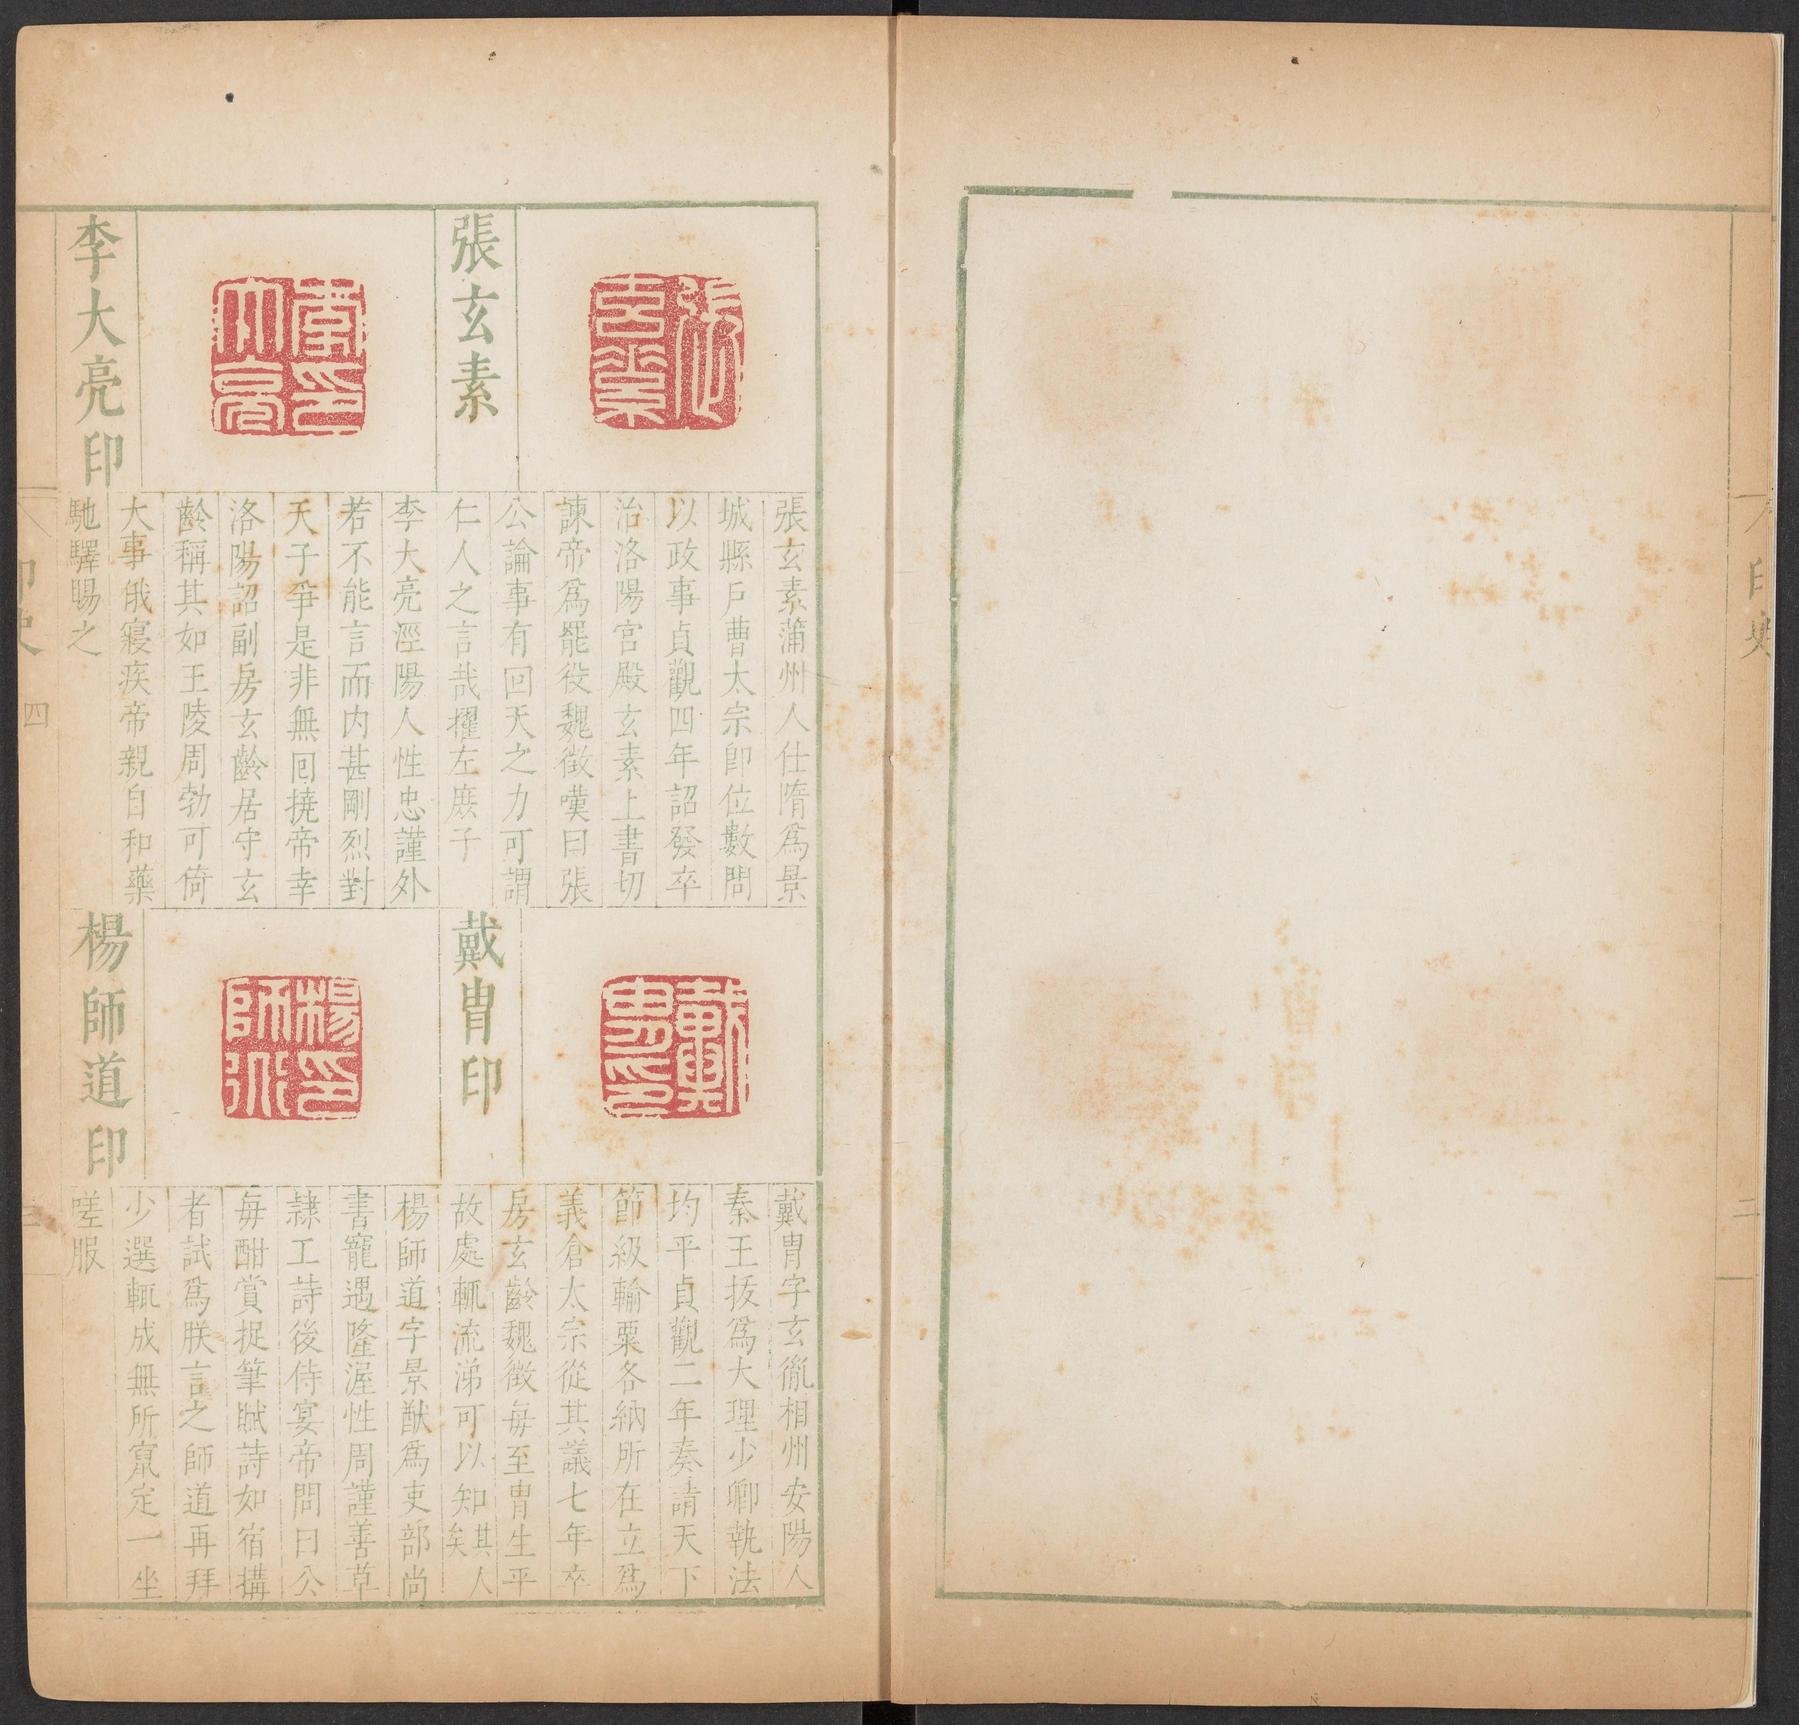 張玄素
張玄素蒲州人仕隋爲景
城縣戶曹太宗卽位數問
以政事貞觀四年詔發卒
治洛陽宮殿玄素上書切
諫帝爲罷役魏徵嘆曰張
公論事有回天之力可謂
仁人之言哉擢左庶子
李大亮印
李大亮涇陽人性忠謹外
若不能言而内甚剛烈對
天子爭是非無回撓帝幸
洛陽詔副房玄齡居守玄
齡稱其如王陵周勃可倚
大事俄寢疾帝親自和藥
馳驛賜之
戴胄印
戴胄字玄胤相州安陽人
秦王扳爲大理少卿執法
均平貞觀二年奏請天下
節級輸粟各納所在立爲
義倉太宗從其議七年卒
房玄齡魏徵每至胄生平
故處輒流涕可以知其人矣
楊師道印
楊師道字景猷爲吏部尚
書寵遇隆渥性周謹善草
隷工詩後侍宴帝問曰公
每酣賞捉筆賦詩如宿搆
者試爲朕言之師道再拜
少選輒成無所竄定一坐
嗟服
印史
四
三
印史
二